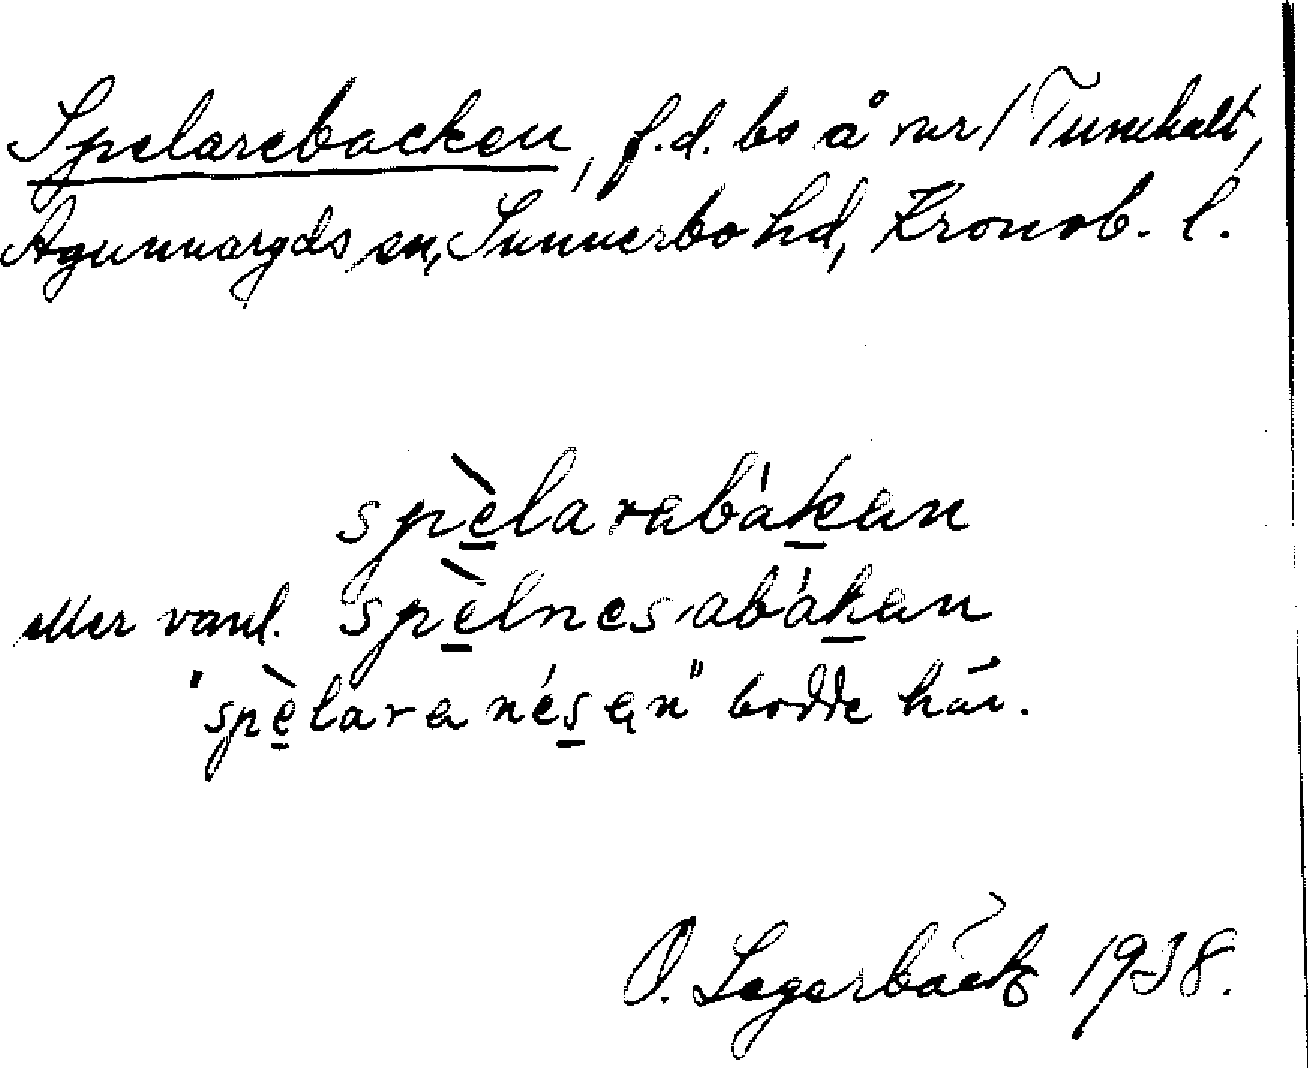 Spelarebacken, f.d. bs å nr 1 Tunehult,
Agunnaryds sn, Sunnerbo hd, Kronob. l.
spèlarabákan
eller vanl. spèlnesabákan
"spèlara nésen" bodde här.
O. Lagerbäck 1938.